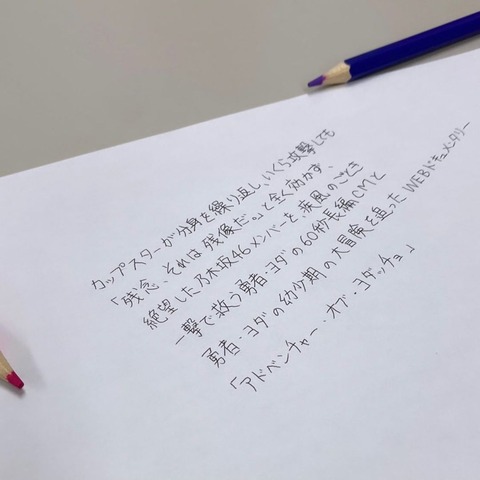 カップスターが分身を繰り返し、いくら攻撃しても
「残念、それは残像だ。」と全く効かず、
絶望した乃木坂46メンバーを、疾風のごとき
一撃で救う勇者・ヨダの60秒長編CMと
勇者・ヨダの幼少期の大冒険を追ったWEBドキュメンタリー
「アドベンチャー・オブ・ヨダッチョ」